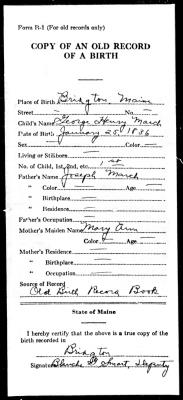 Form R-1 (For old records only)
COPY OF AN OLD RECORD
OF A BIRTH
Place of Birth Bridgton Maine
Street — No. —
Child's Name George Henry March
Date of Birth January 25, 1886
Sex — Color —
Living or Stillborn —
No. of Child, 1st, 2nd, etc. 1st
Father's Name Joseph March
" Color — Age —
" Birthplace —
" Residence —
Father's Occupation —
Mother's Maiden Name Mary Ann
Color — Age —
Mother's Residence —
" Birthplace —
" Occupation —
Source of Record
Old Birth Record Book
State of Maine
I hereby certify that the above is a true copy of the
birth recorded in
Bridgton
Signature Blanche Stuart, Deputy